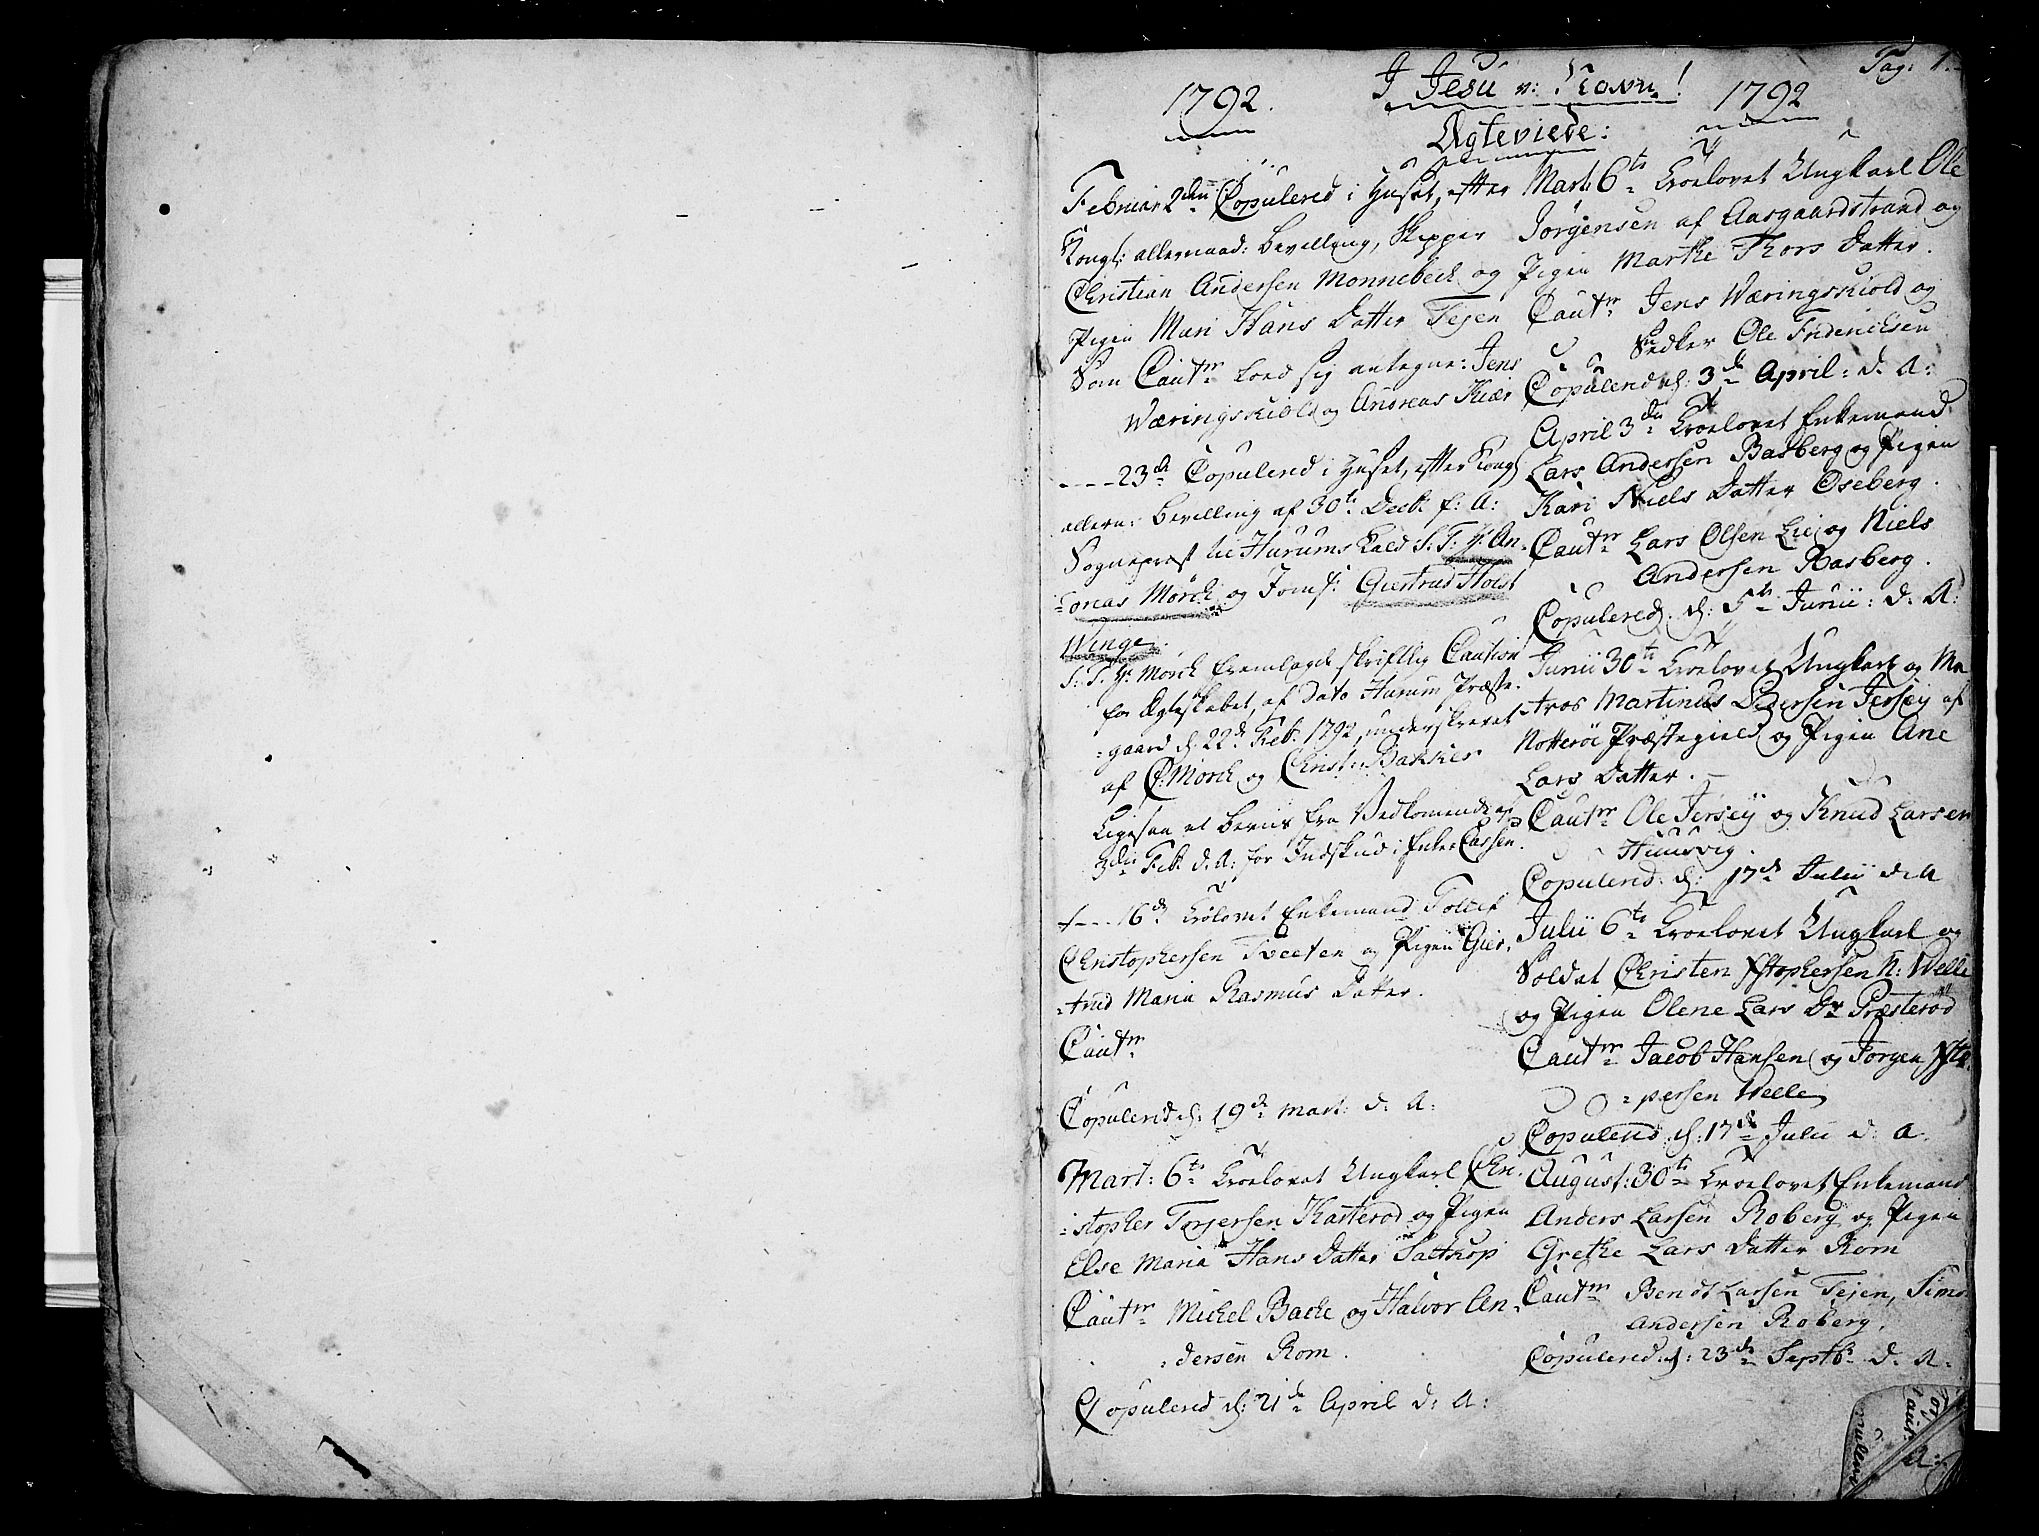 Pag: 1.
I Jesu Navn!
1792. 1792
Ægteviede:
Februar 2den Copulered i Huset, efter
Kongl: allernaad: Bevilling, Skipper
Christian Andersen Monnebech og
Pigen Mari Hans Datter Tejen
Som Cautr lod sig antegne: Jens
Wæringskiold og Andreas Kiær
---- 23de Copulered i Huset, efter Kongl
allern: Bevilling af 30te Decb: f: A:
Sognepræst til Hurums Kald S: T: Hr: An-
-dreas Mörch og Jomf: Giertrud Holst
Winge.
S: T. Hr Mörch fremlagde skriftlig Caution
for Ægteskabet, af Dato Hurum Præste-
-gaard d: 22de Feb: 1792, underskrevet
af C: Mörch og Christ: Bakker
Ligesaa et Beviis fra Vedkommende af
3die Feb: d: A: for Indskud i Enke Cassen.
---- 16de trolovet Enkemand Tollef
Christophersen Tveeten og Pigen Gier-
-trud Maria Rasmus Datter.
Cautr
Copulered d: 19de Mart: d: A:
Mart: 6te troelovet Ungkarl Chri-
-stopher Torjersen Kasterod og Pigen
Else Maria Hans Datter Saltkop
Cautr Michel Bache og Halvor An-
-dersen Rom.
Copulered d: 21de April d: A:
Mart: 6te troelovet Ungkarl Ole
Jörgensen af Aasgaardstrand og
Pigen Marthe Thors Datter.
Cautr Jens Wæringskiold og
Snedker Ole Fridericksen
Copulered d: 3de April: d: A:
April 3die troelovet Enkemand
Lars Andersen Basberg og Pigen
Kari Niels Datter Oseberg.
Cautr Lars Olsen Lie og Niels
Andersen Basberg.
Copulered d: 5te Junii: d: A:
Junii 30te troelovet Ungkarl og Ma-
-tros Martinus Pedersen Jersöy af
Notteröe Præstegield og Pigen Ane
Lars Datter.
Cautr Ole Jersöy og Knud Larsen
Huusvig.
Copulered d: 17de Julii d: A
Julii 6te troelovet Ungkarl og
Soldat Christen Xstophersen N: Welle
og Pigen Olene Lars Dr Præsterod
Cautr Jacob Hansen og Jörgen Xsto-
-phersen Welle
Copulered d: 17de Julii d: A.
August: 30te troelovet Enkemand
Anders Larsen Roberg og Pigen
Grethe Lars Datter Rom
Cautr Bendt Larsen Tejen, Simo
Andersen Roberg.
Copulered d: 23de Septbr d: A: